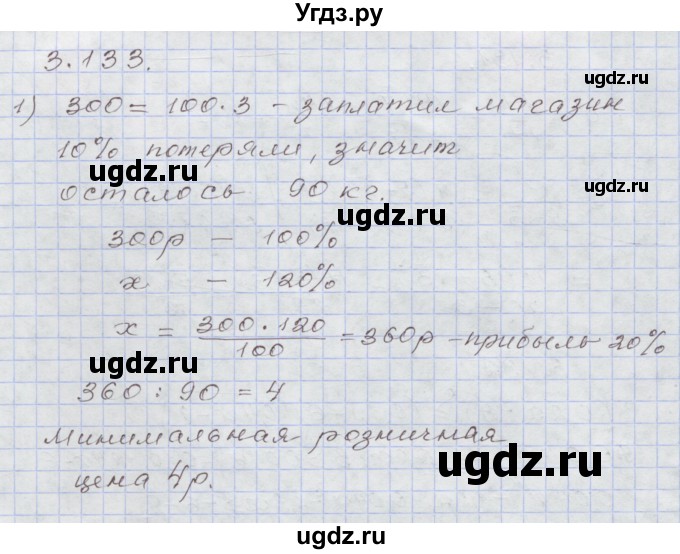 Угдз.ру
3.133.
ugdz.ru
1) 300 = 100·3 – заплатил магазин
10% потеряли, значит
ugdz.ru
ugdz.ru
осталось 90 кг.
ugdz.ru
300р – 100%
x – 120%
x = 300·120/100 = 360р – прибыль 20%
ugdz.ru
ugdz.ru
360 : 90 = 4
Минимальная розничная
ugdz.ru
ugdz.ru
цена 4р.
ugdz.ru